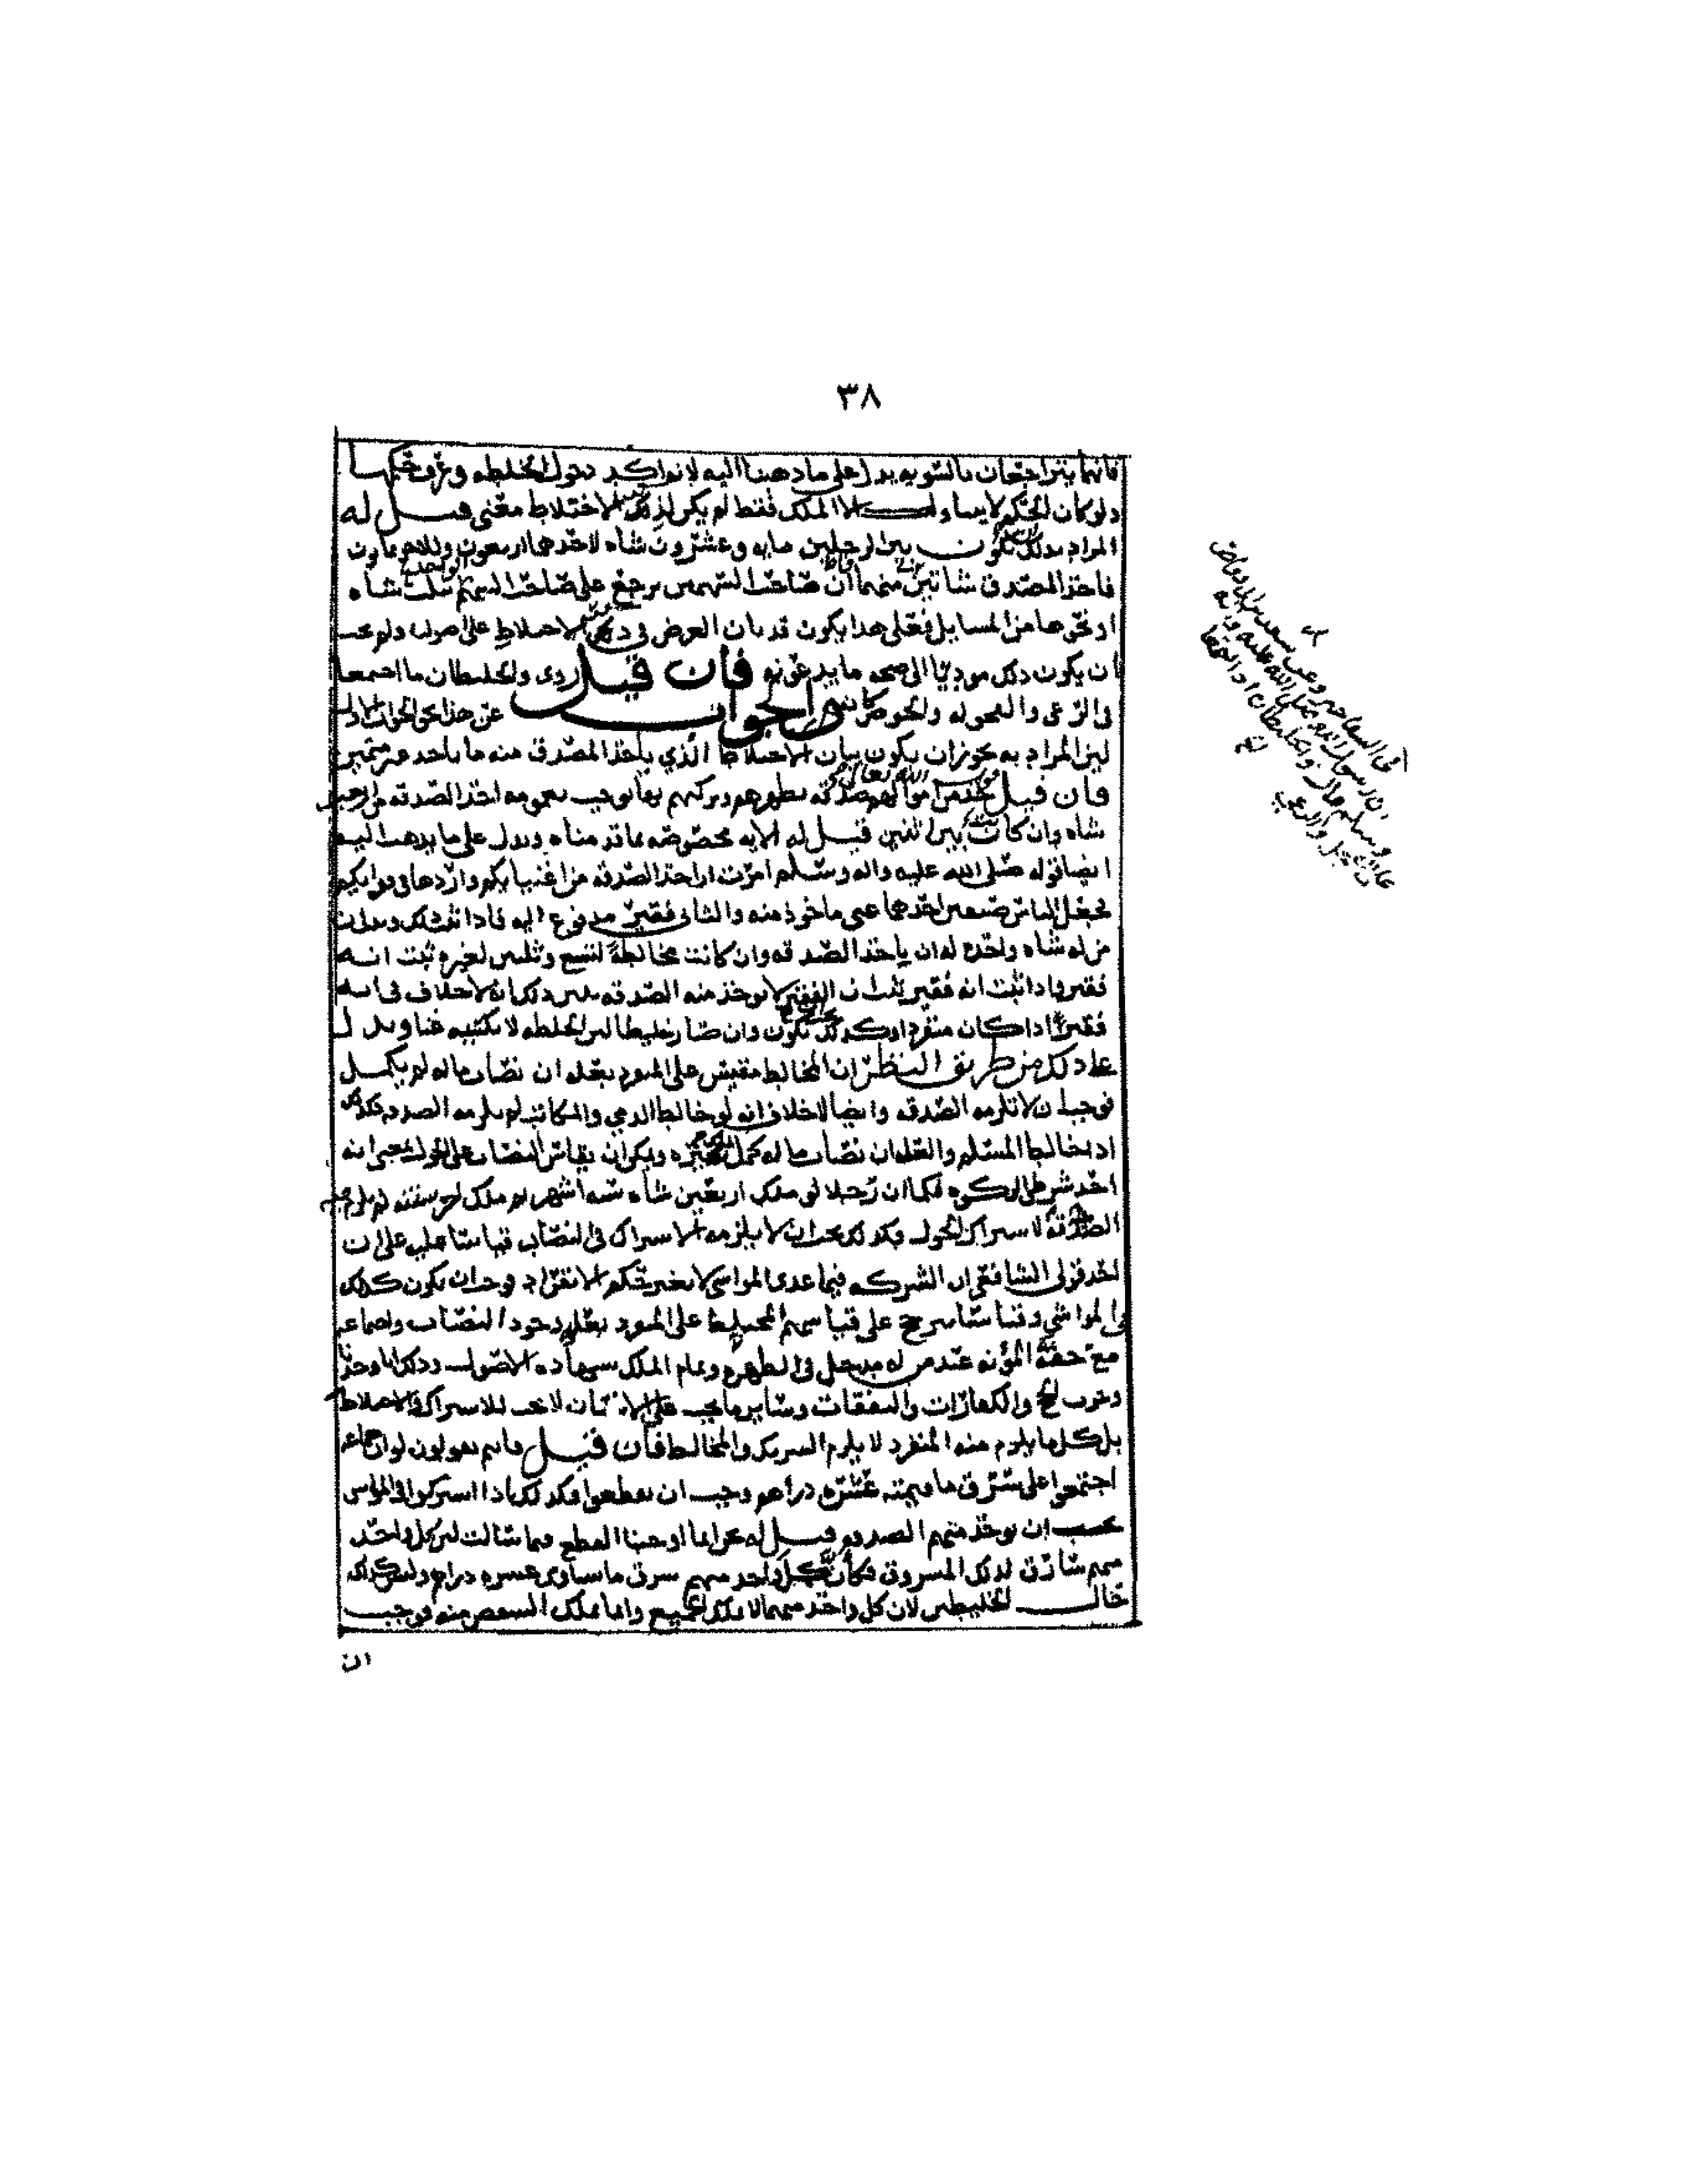 ٣٨
فانهما يتراجعان بالسويه يدل على ما ذهبنا اليه لانه الخلطه
ولو كان الحكم لا الا الملك فقط لم يكن لذكر الاختلاط معنى قيل له
المراد بذلك ان يكون بين الرجلين مايه وعشرون شاه لاحدهما اربعون وللاخر ثمانون
فاخذ المصدق شاتين منهما ان صاحب السهمين يرجع على صاحب السهم بثلث شاه
او نحوها من المسايل فعلى هذا يكون قد بان الغرض في ذكر الاختلاط على اصولنا ولم يجب
ان يكون ذلك موديا الى صحه ما يدعونه فان قيل روى والخليطان ما اجتمعا
في الرعي والفحوله والحوض كان الجواب عن هذا نحو الجواب
ليس المراد به يجوز ان يكون بيان الاختلاط الذي ياخذ المصدق منه ما ياخذ
فان قيل قول الله تعالى خذ من اموالهم صدقه تطهرهم وتزكيهم بها يوجب عمومه اخذ الصدقه من اربعين
شاه وان كانت بين اثنين قيل له الايه مخصوصه بما قدمناه ويدل على ما يذهب اليه
ايضا قوله صلى الله عليه واله وسلم امرت ان اخذ الصدقه من اغنيايكم واردها في فقرايكم
فجعل الناس صنفين احدهما غني ماخوذ منه والثاني فقير مدفوع اليه فاذا ثبت ذلك
من له شاه واحده له ان ياخذ الصدقه وان كانت مخالطة لتسع وثلثين لغيره ثبت انه
فقير واذا ثبت انه فقير ثبت ان الفقير لا يوخذ منه الصدقه يبين ذلك انه لا خلاف في انه
فقير اذا كان منفردا وكذلك يكون وان صار خليطا لان الخلطه لا تكسبه غنا ويدل
على ذلك من طريق النظر ان المخالط مقيس على المنفرد بعله ان نصاب ماله لم يكمل
فوجب ان لا تلزمه الصدقه وايضا لا خلاف انه لو خالط الذمي والمكاتب لم يلزمه الصدقه فكذلك
اذا خالط المسلم والعله ان نصاب ماله كمل بغيره ويمكن ان يقاس النصاب على الحول بمعنى انه
احد شرطي الزكوه فكما ان رجلا لو ملك اربعين شاه سته اشهر ثم ملك اخر سنته لم يلزم
الصدقه لاشتراك الحول فكذلك يجب ان لا يلزمه الاشتراك في النصاب قياسا عليه على ان
احد قولي الشافعي ان الشركه فيما عدى المواشي لا يغير حكم الانفراد فوجب ان يكون كذلك
في المواشي وقياسنا يرجح على قياسهم المخالط على المنفرد بعله وجود النصاب
مع خفة المؤنه عند من له مدخل في الطهره وتمام الملك بشهاده الاصول وذلك انا وجدنا
وجوب الحج والكفارات والنفقات وساير ما يجب على الانسان لا يجب للاشتراك والاختلاط
بل كل ما يلزم منه المنفرد لا يلزم الشريك والمخالط فان قيل فانتم تقولون لو ان جماعه
اجتمعوا على سرق ما قيمته عشره دراهم وجب ان يقطعوا فكذلك اذا اشتركوا في المواشي
يجب ان يوخذ منهم الصدقه قيل له نحن انما اوجبنا القطع فيما سالت لان كل واحد
منهم سارق لذلك المسروق فكأن كل واحد منهم سرق ما يساوي عشره دراهم وليس كذلك
حال الخليطين لان كل واحد منهما لا يملك الجميع وانما يملك البعض منه فوجب
ان
وعن سعد بن ابي وقاص
ان رسول الله صلى الله عليه واله
وسلم قال والخليطان ما اجتمعا
على الفحل والرعي